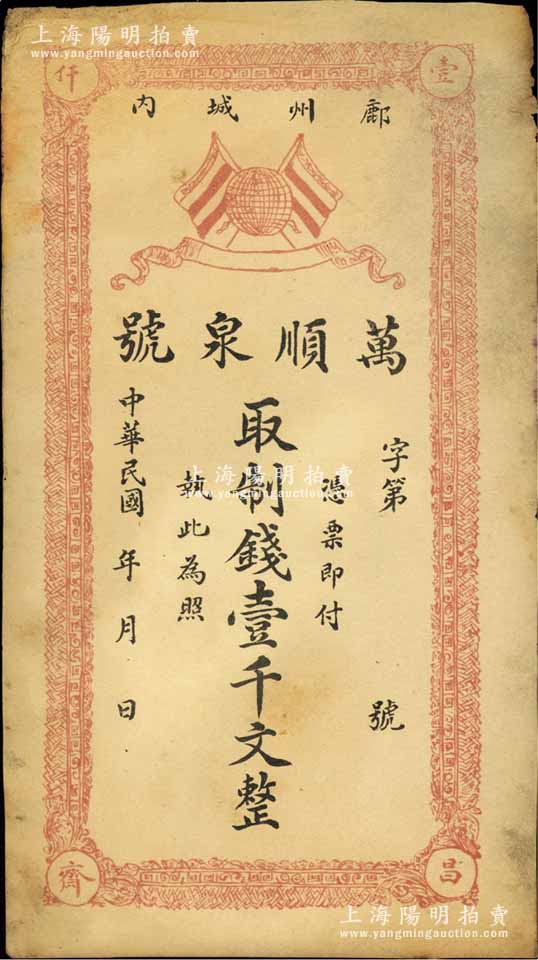 上海陽明拍賣
www.yangmingauction.com
上海陽明拍賣
www.yangmingauction.com
壹
仟
鄜州城内
萬順泉號
字第 號
憑票即付
取制錢壹千文整
執此為照
中華民國 年 月 日
上海陽明拍賣
www.yangmingauction.com
昌
齋
上海陽明拍賣
www.yangmingauction.com